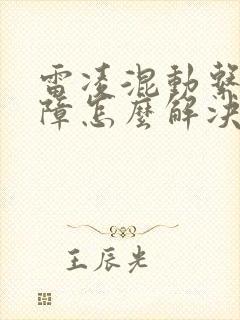 雷凌混動繫
障怎麼解決
王辰光